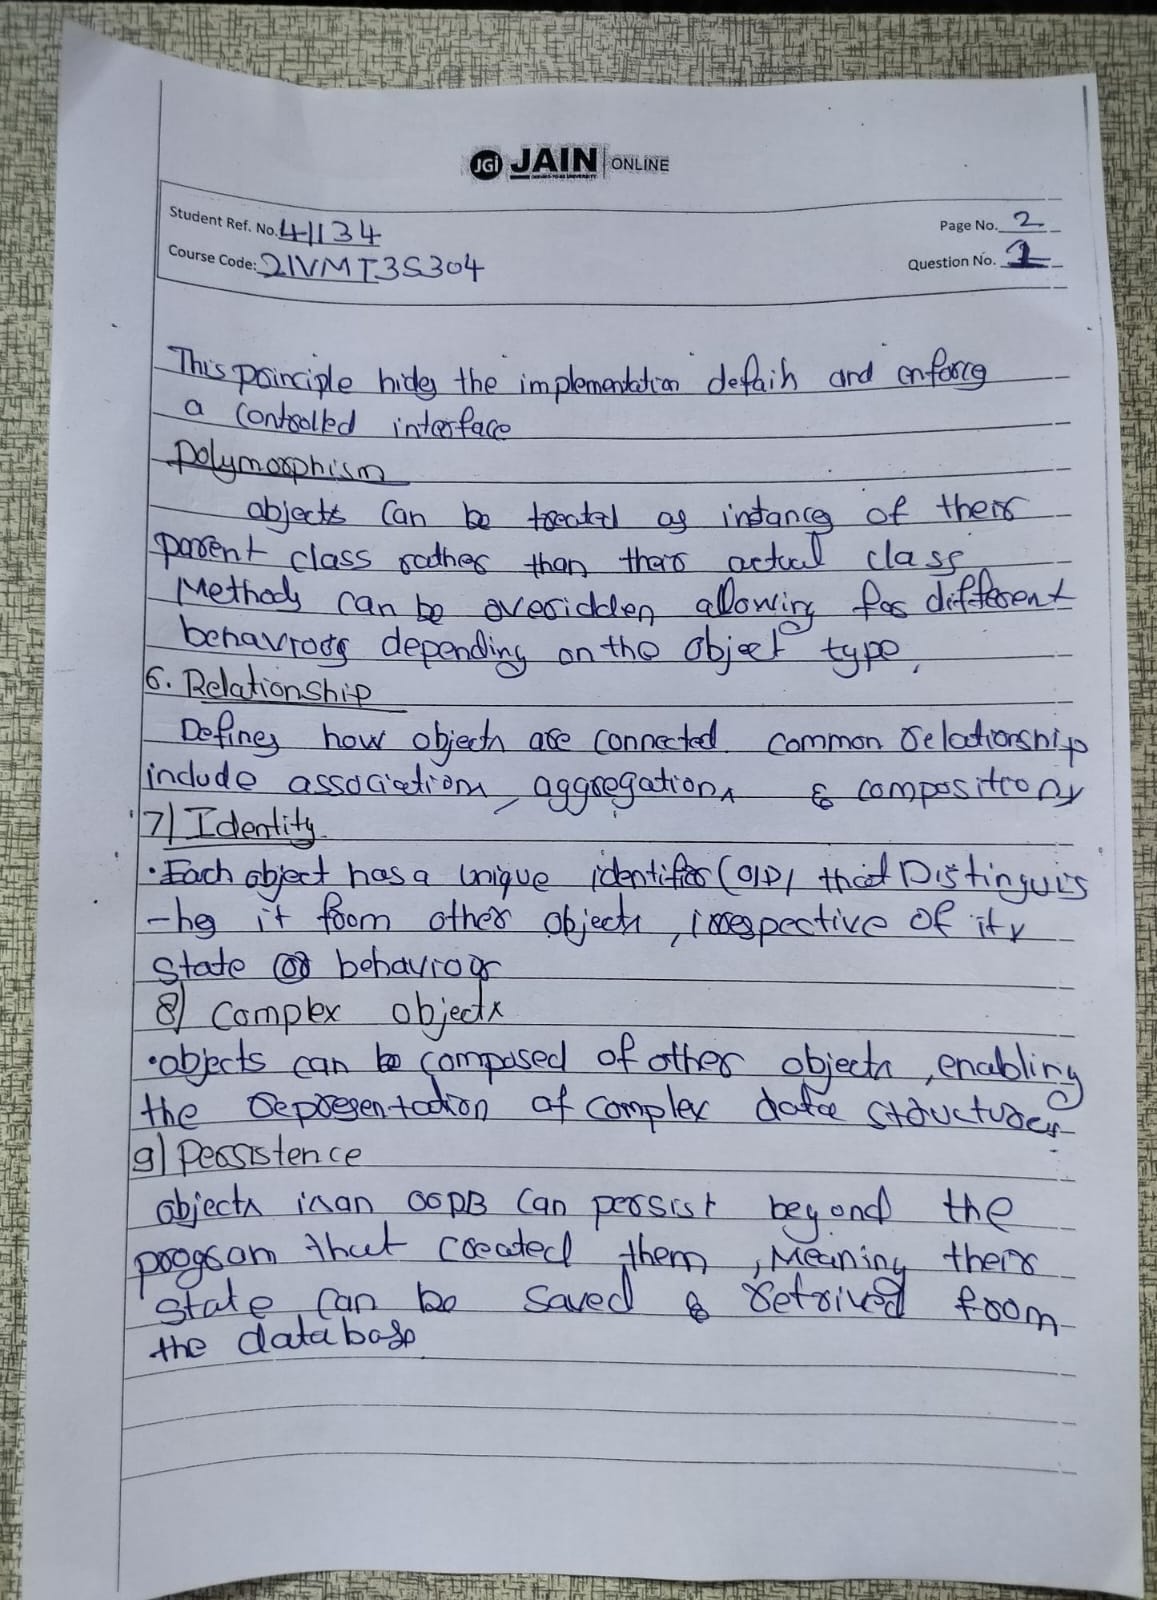 JGI JAIN ONLINE
Student Ref. No. 41134
Page No. 2
Course Code: 21VMT3S304
Question No. 1
This principle hides the implementation details and enforces
a controlled interface
Polymorphism
objects can be treated as instances of their
parent class rather than their actual class
Methods can be overidden allowing for different
behaviors depending on the object type.
6. Relationship
Defines how objects are connected. common relationship
include association, aggregation, & compositions
7) Identity
• Each object has a unique identifier (OID) that Distinguis
-hes it from other objects, irrespective of its
state or behavior
8) Complex objects
• objects can be composed of other objects, enabling
the representation of complex data structures
9) Persistence
objects in an OODB can persist beyond the
program that created them, Meaning their
state can be saved & retrived from
the database